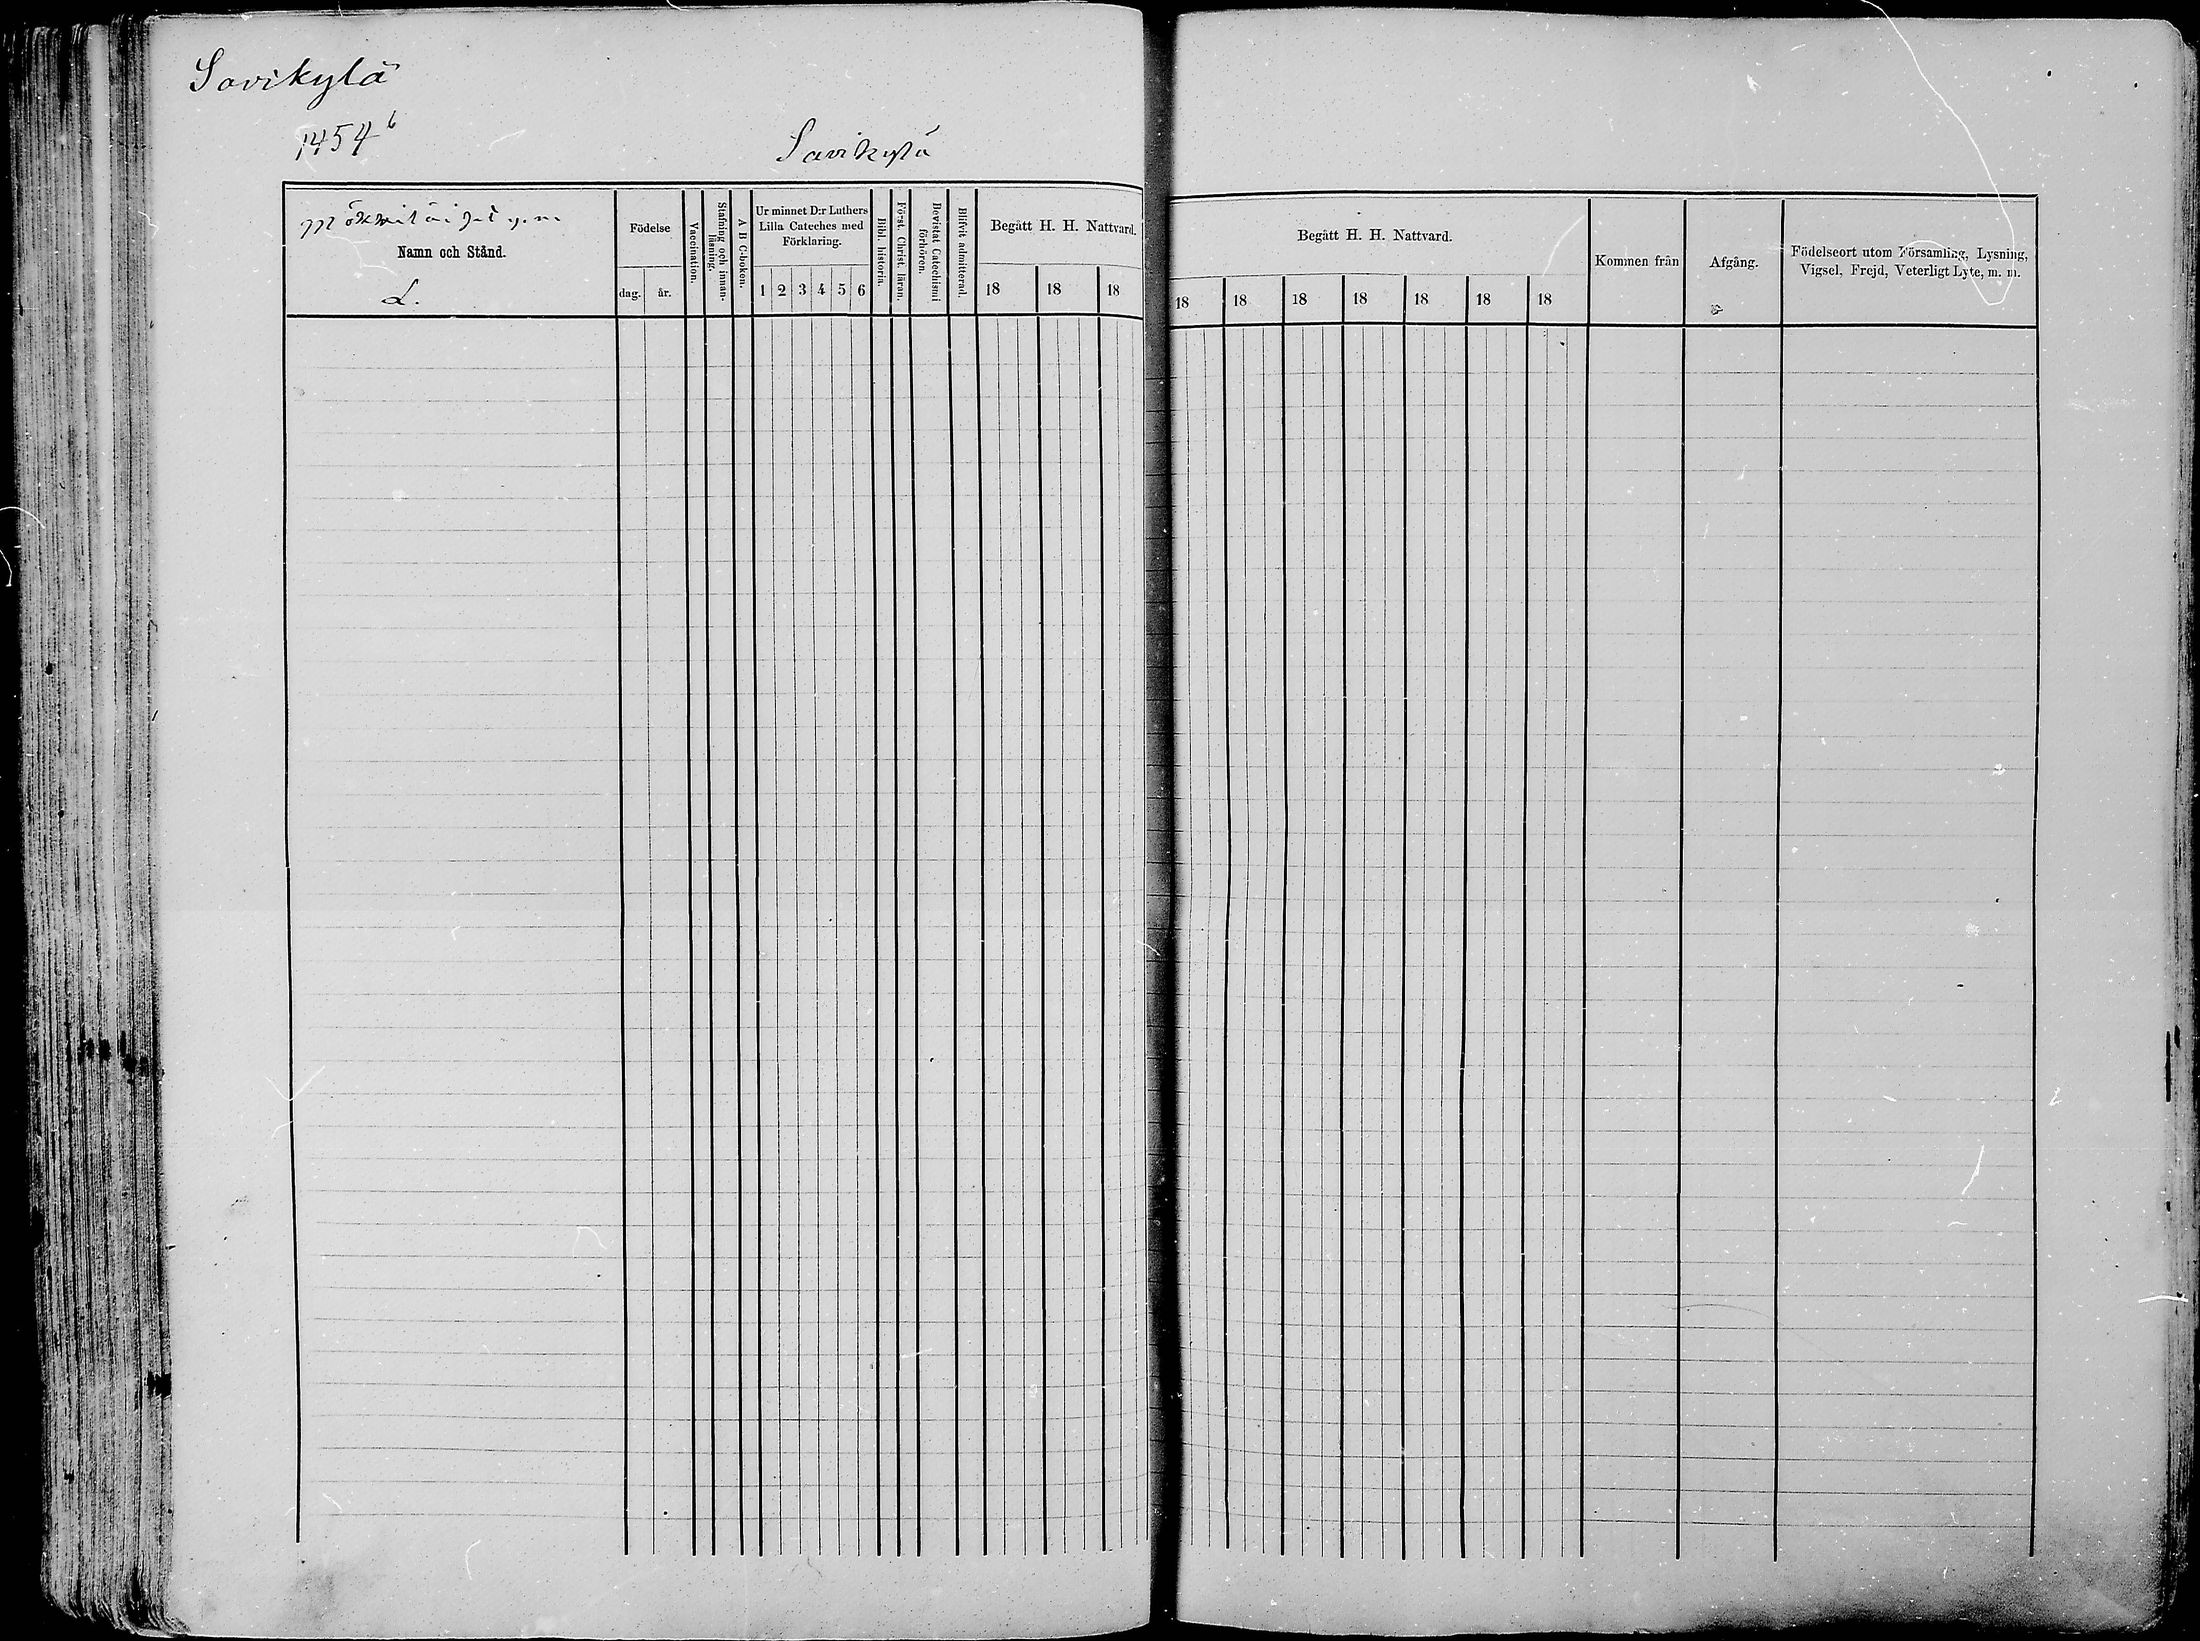 Savikylä
1454 b
Savikylä
Namn och Stånd.
L.
Födelse
dag. år.
Vaccination.
Stafning och innan-
läsning.
A B C-boken.
Ur minnet D:r Luthers
Lilla Cateches med
Förklaring.
1 2 3 4 5 6
Bibl. historia.
Förs-t. Christ. läran.
Bevistat Catechismi
förhören.
Blifvit admitterad.
Begått H. H. Nattvard.
18 18 18
Begått H. H. Nattvard.
18 18 18 18 18 18 18
Kommen från
Afgång.
Födelseort utom Församling, Lysning,
Vigsel, Frejd, Veterligt Lyte, m. m.